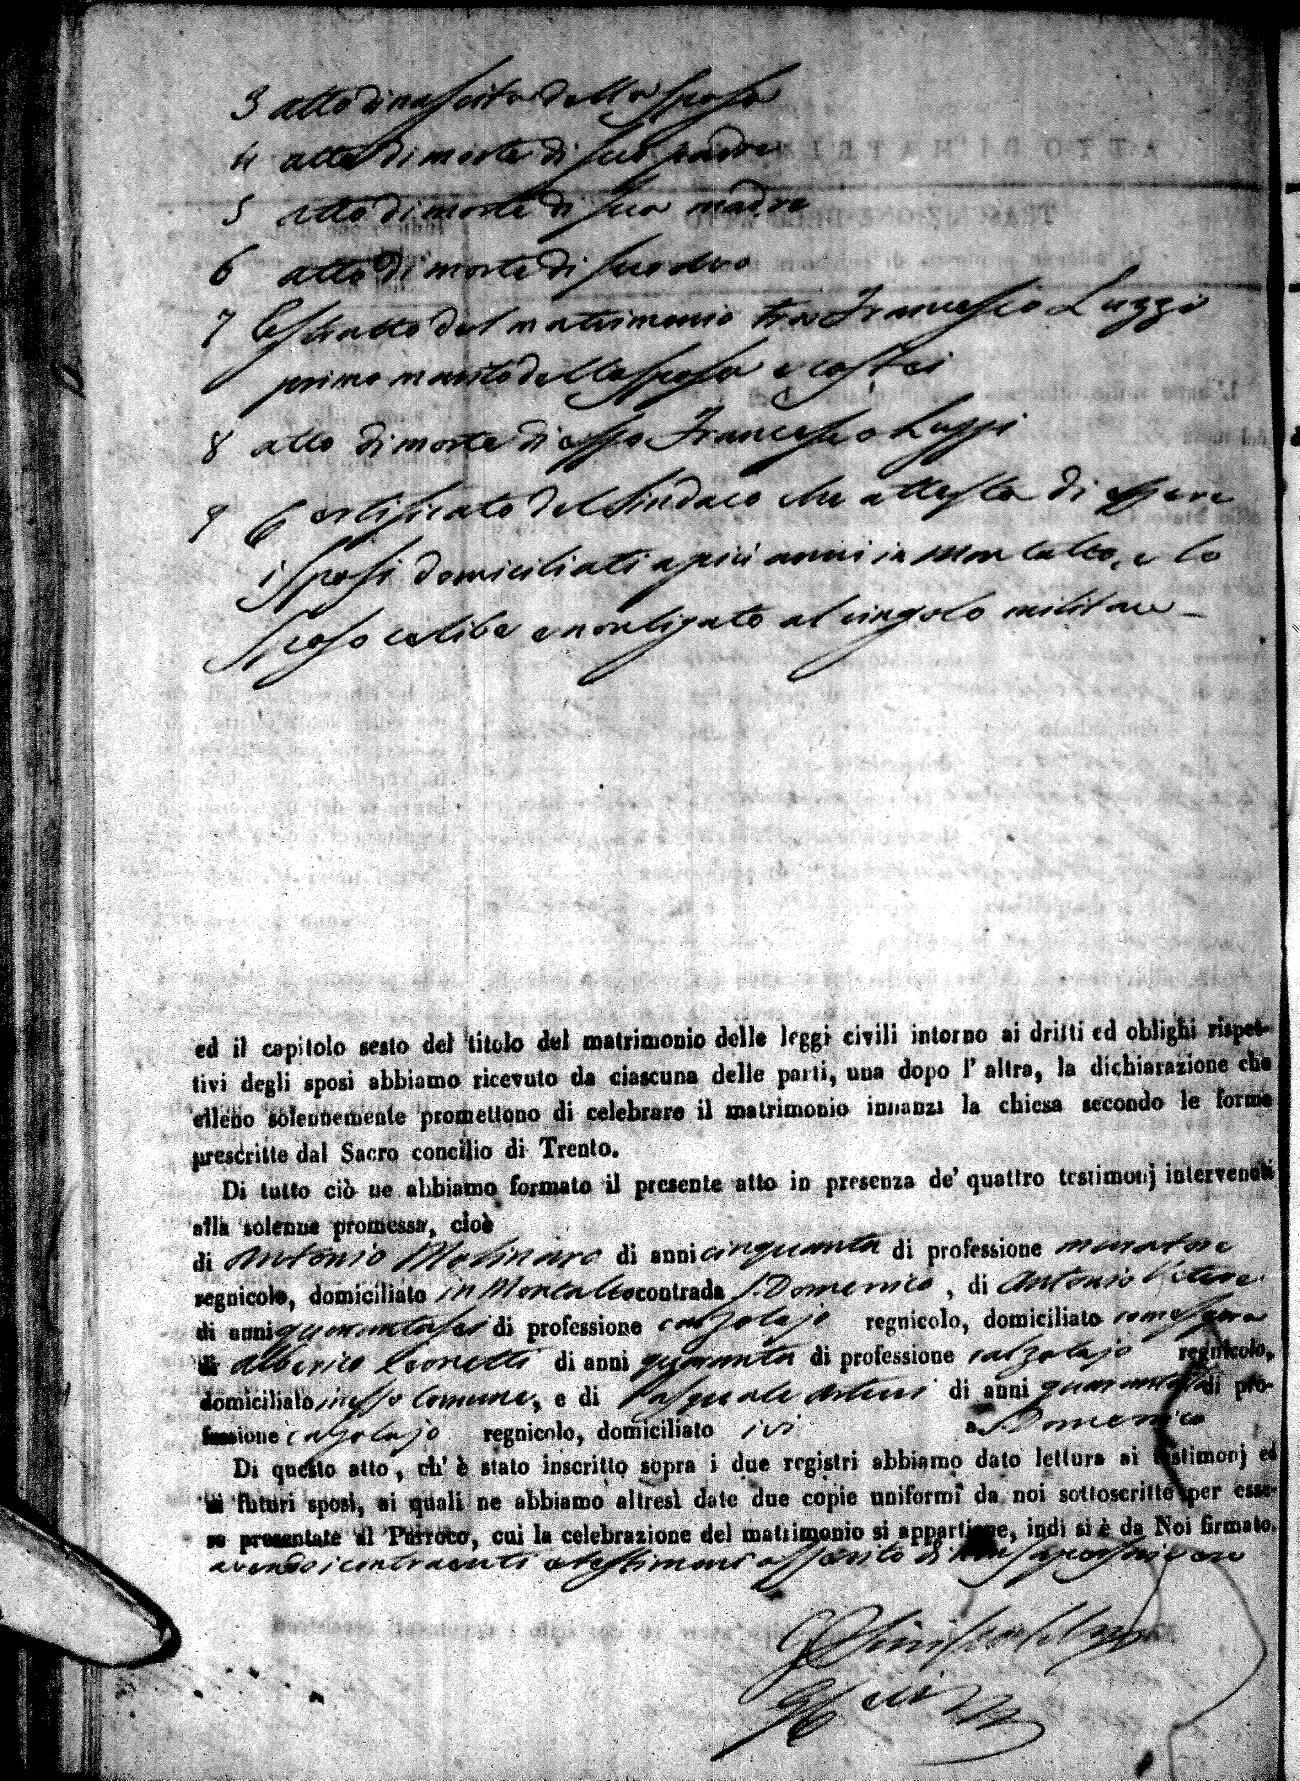 3 atto di nascita della sposa
4 atto di morte di suo padre
5 atto di morte di sua madre
6 atto di morte di suo avo
7 Estratto del matrimonio tra Francesco Luzzi
primo marito della sposa e costei
8 atto di morte di esso Francesco Luzzi
9 Certificato del Sindaco che attesta di essere
i sposi domiciliati a più anni in Montalto, e lo
sposo celibe e non ligato al cingolo militare
ed il capitolo sesto del titolo del matrimonio delle leggi civili intorno ai dritti ed oblighi rispet-
tivi degli sposi abbiamo ricevuto da ciascuna delle parti, una dopo l' altra, la dichiarazione che
elleno solennemente promettono di celebrare il matrimonio innanzi la chiesa secondo le forme
prescritte dal Sacro concilio di Trento.
Di tutto ciò ne abbiamo formato il presente atto in presenza de' quattro testimonj intervenuti
alla solenne promessa, cioè
di Antonio Molinaro di anni cinquanta di professione muratore
regnicolo, domiciliato in Montalto contrada S. Domenico, di Antonio Vetere
di anni quarantasei di professione calzolajo regnicolo, domiciliato come sopra
di Alberico Leonetti di anni quaranta di professione calzolajo regnicolo,
domiciliato in esso Comune, e di Pasquale di anni di pro-
fessione calzolajo regnicolo, domiciliato ivi a S. Domenico
Di questo atto, ch' è stato inscritto sopra i due registri abbiamo dato lettura ai testimonj ed
ai futuri sposi, ai quali ne abbiamo altresì date due copie uniformi da noi sottoscritte per esse-
re presentate al Parroco, cui la celebrazione del matrimonio si appartiene, indi si è da Noi firmato.
avendo i contraenti e testimoni asserito di non sapere scrivere